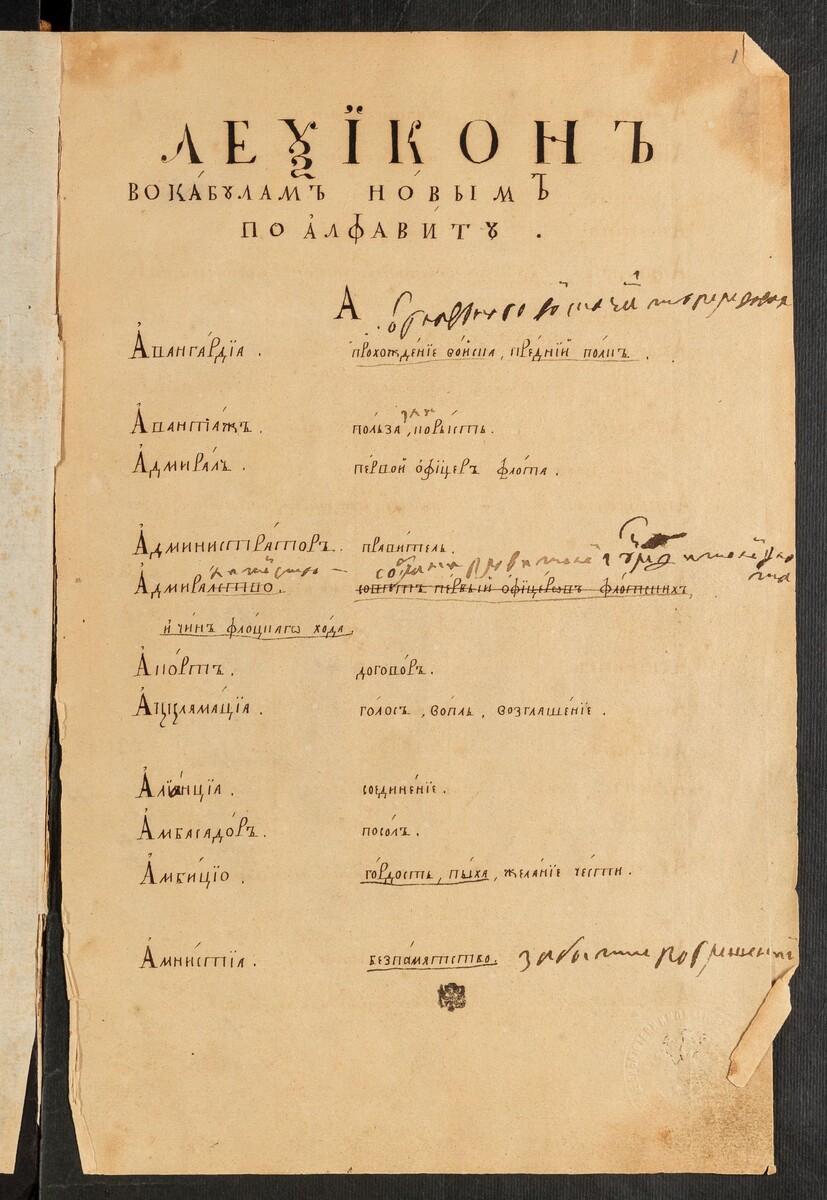 1
ЛЕѮЇКОНЪ
ВОКА́БꙊЛАМЪ НО́ВЫМЪ
ПО А҆ЛФАВИ́ТꙊ .
А
А҆вангардїа . прохожде́нїе во́йска , пре́днїй по́лкъ .
А҆ванта́жъ . по́льза , коры́сть .
А҆дмира́лъ . пе́рвой о҆фїце́ръ фло́та .
А҆дминистра́торъ . прави́тель .
А҆дмиралство . совѣтъ первый о҆фїцеровъ флотскихъ ,
и҆ чинъ флоцкагѡ хо́да ,
А҆ко́ртъ . догово́ръ .
А҆ццлама́цїа . го́лосъ , во́пль , возглаше́нїе .
А҆лїа́нцїа . соедине́нїе .
А҆мбасадо́ръ . посо́лъ .
А҆мби́цїо . го́рдость , пы́ха , жела́нїе че́сти .
А҆мни́стїа . безпа́мятство . забытие погрешений